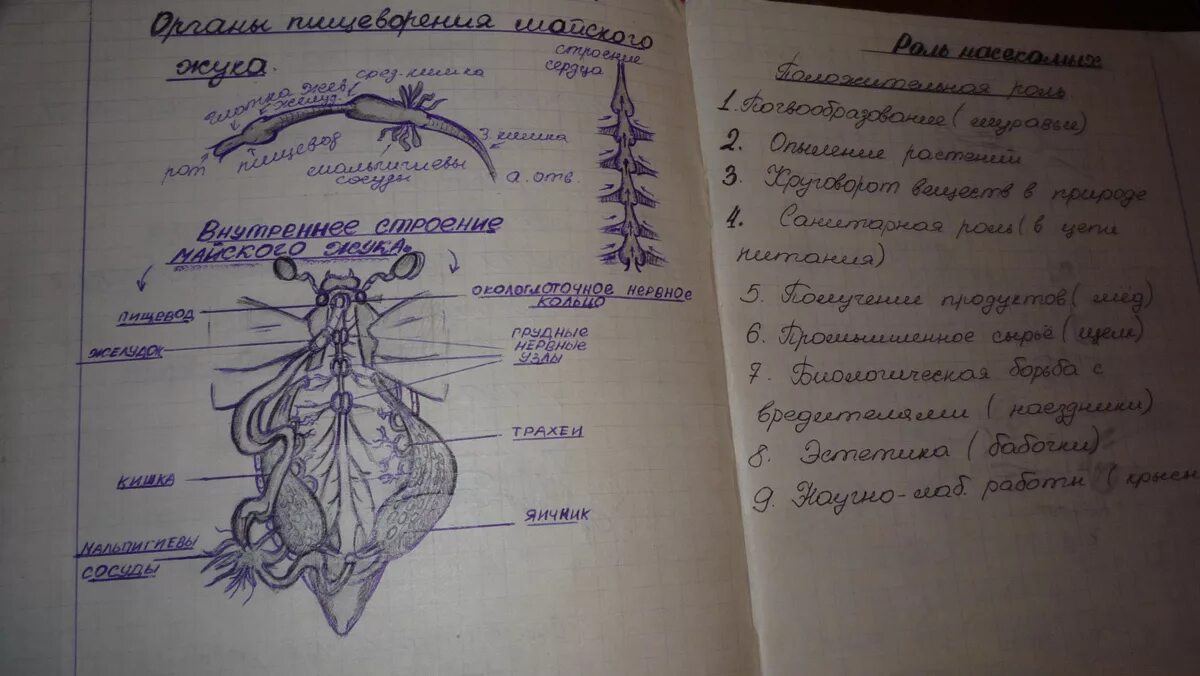 Органы пищеворения майского
жука.
строение
сердца
соед. кишка
глотка
жев.
желуд.
з. кишка
рот
пищевод
мальпигиевы
сосуды
а. отв.
Внутреннее строение
майского жука.
пищевод
желудок
кишка
мальпигиевы
сосуды
окологлоточное нервное
кольцо
грудные
нервные
узлы
трахеи
яичник
Роль насекомых
Положительная роль.
1. Почвообразование (муравьи)
2. Опыление растений
3. Круговорот веществ в природе
4. Санитарная роль (в цепи
питания)
5. Получение продуктов (мёд)
6. Промышленное сырьё (шёлк)
7. Биологическая борьба с
вредителями (наездники)
8. Эстетика (бабочки)
9. Научно-лаб. работы (